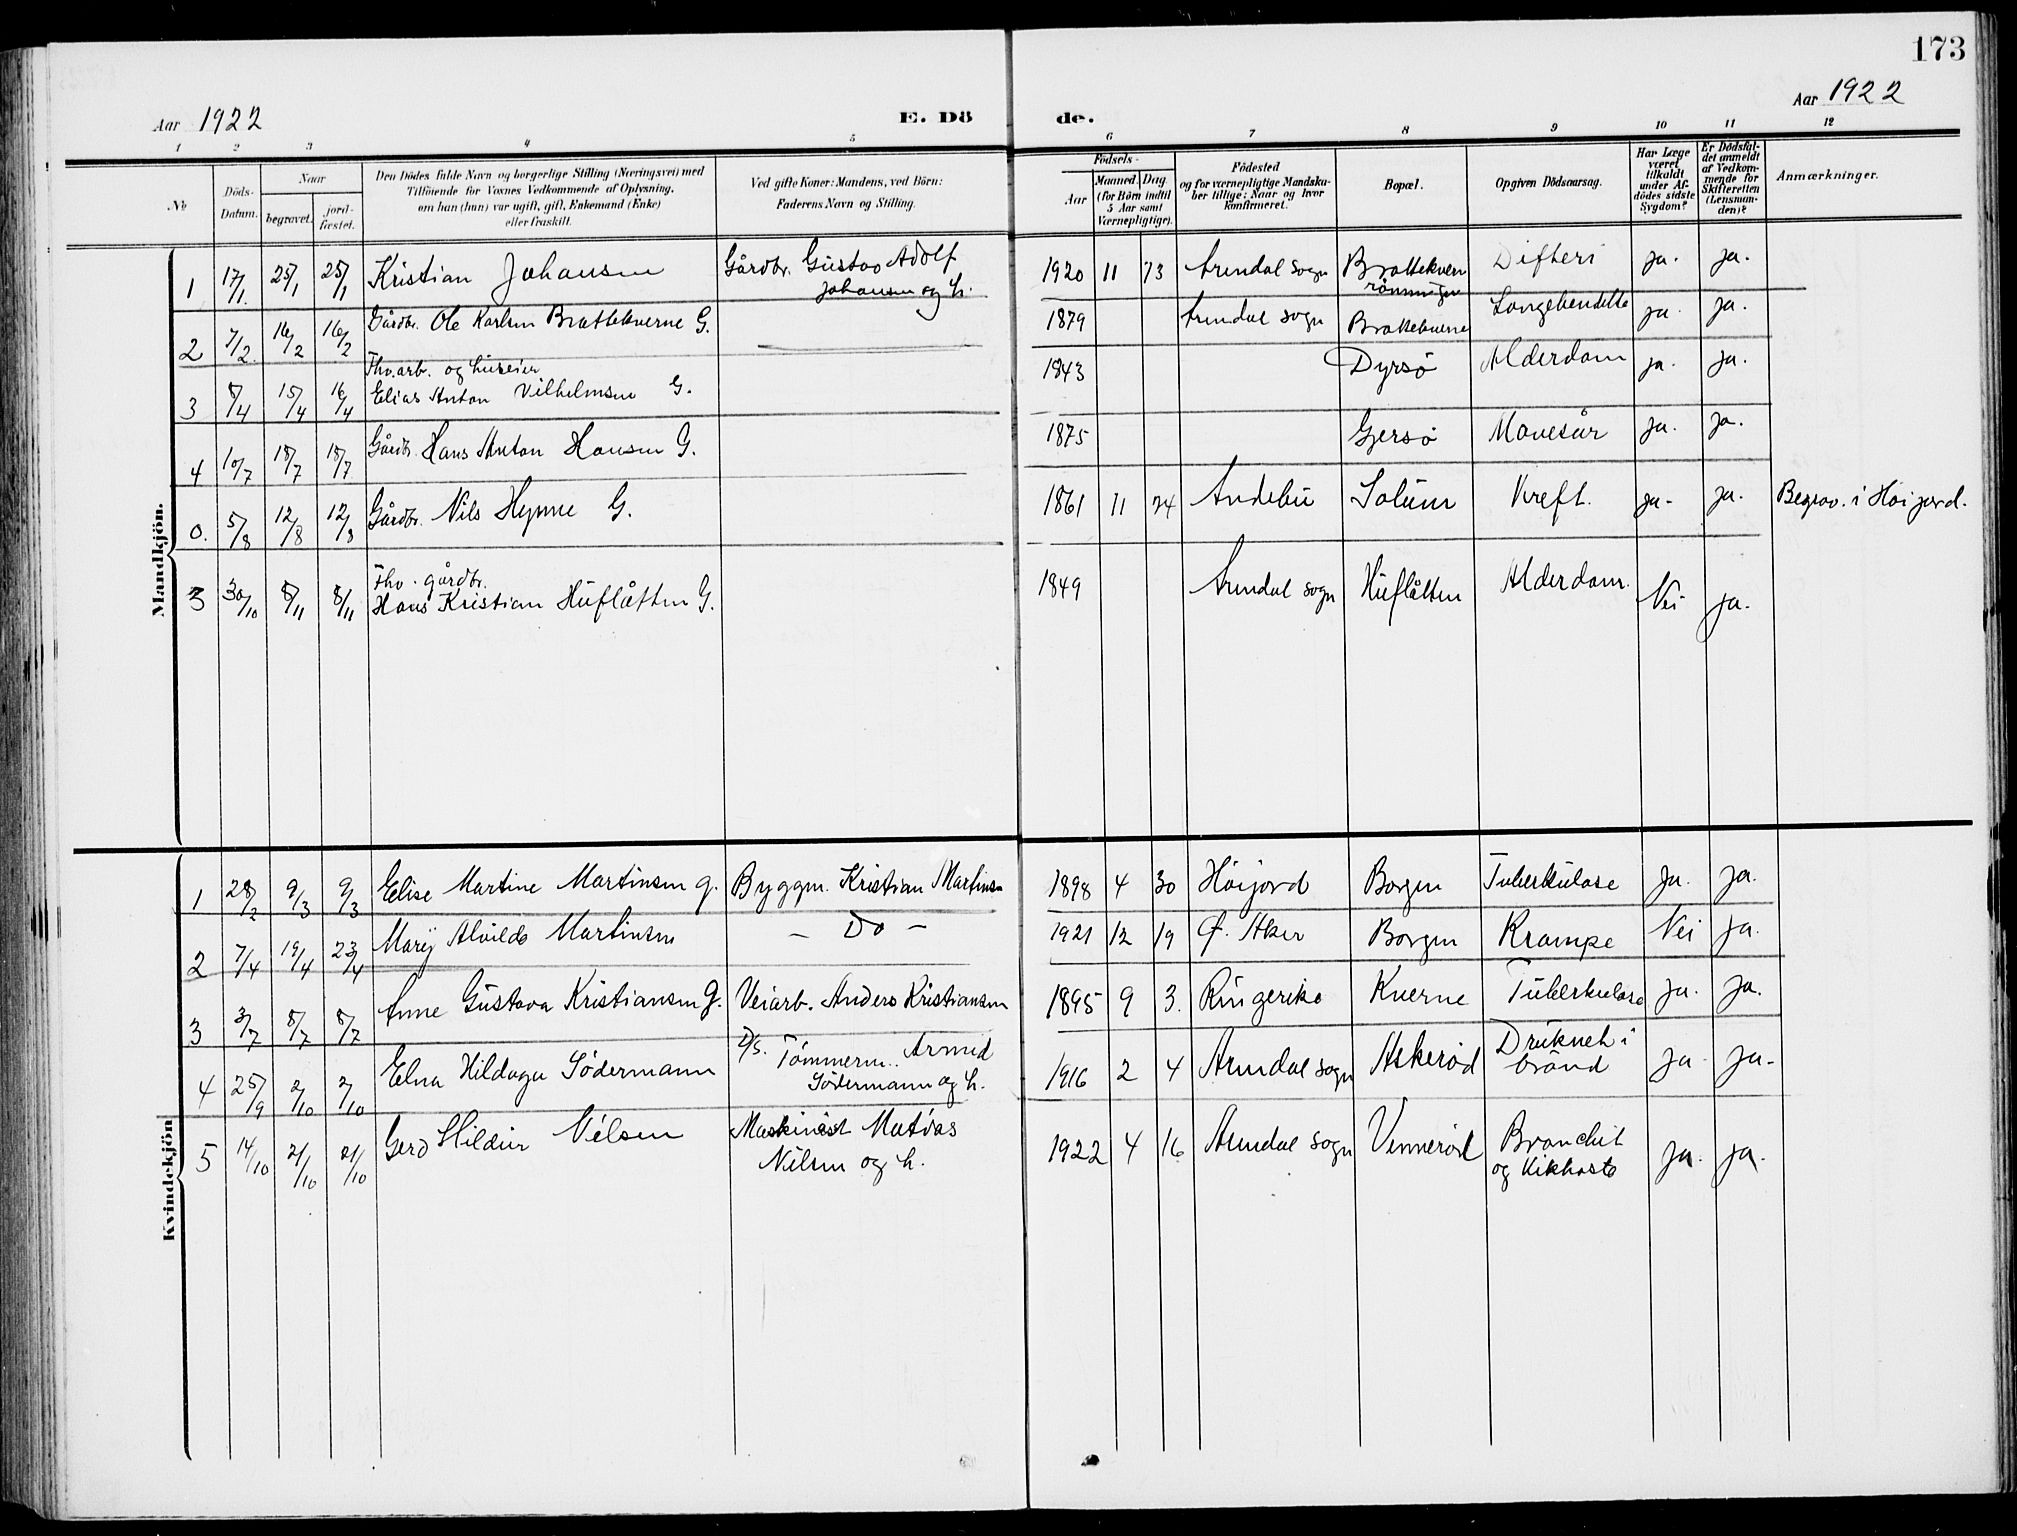 173
Aar 1922
E. Dö
de.
Aar 1922
1 2 3 4 5 6 7 8 9 10 11 12
No
Döds-Datum.
Naar
begravet.
jord-fæstet.
Den Dödes fulde Navn og borgerlige Stilling (Næringsvei) med
Tilföiende for Voxnes Vedkommende af Oplysning,
om han (hun) var ugift, gift, Enkemand (Enke)
eller fraskilt.
Ved gifte Koner: Mandens, ved Börn:
Faderens Navn og Stilling.
Födsels-
Aar
Maaned. Dag
(for Börn indtil
5 Aar samt
Værnepligtige).
Födested
og for værnepligtige Mandska-
ber tillige: Naar og hvor
konfirmeret.
Bopæl.
Opgiven Dödsaarsag.
Har Læge
været
tilkaldt
under Af-
dödes sidste
Sygdom?
Er Dödsfal-
det anmeldt
af Vedkom-
mende for
Skifteretten
(Lensman-
den)?
Anmærkninger.
Mandkjön.
1 17/1. 25/1 25/1 Kristian Johansen Gårdbr. Gustav Adolf
Johansen og h. 1920 11 13 Arendal sogn Brattekvern
rønningen Difteri ja. ja.
2 7/2. 16/2 16/2 Gårdbr. Ole Karlsen Brattekverne G. 1879 Arendal sogn Brattekverne ja. ja.
3 8/4 15/4 16/4 Fhv. arb. og huseier
Elias Anton Vilhelmsen G. 1843 Dyrsø Alderdom ja. ja.
4 10/7 18/7 18/7. Gårdbr. Hans Anton Hansen G. 1875 Gjersø Mavesår ja. ja.
0. 5/8 12/8 12/8 Gårdbr. Nils Hynne G. 1861 11 24 Andebu Solum Kreft. ja. ja. Begrav. i Høijord.
30/10 8/11 8/11 Fhv. gårdbr.
Hans Kristian Huflåtten G. 1849 Arendal sogn Huflåtten Alderdom. Nei ja.
Kvindekjön
1 28/2 9/3 9/3 Elise Martine Martinsen g. Byggm. Kristian Martinsen 1898 4 30 Høijord Borgen Tuberkulose ja. ja.
2 7/4 19/4 23/4 Mary Alvilde Martinsen – Do – 1921 12 19 Ø. Aker Borgen Krampe Nei ja.
3 3/7 8/7 8/7 Anne Gustava Kristiansen g. Veiarb. Anders Kristiansen 1895 9 3. Ringerike Kverne Tuberkulose ja. ja.
4 25/9 2/10 2/10 Elna Hildagu Södermann D/s. Tømmerm. Armid
Södermann og h. 1916 2 4 Arendal sogn Askerød Druknet i
brønd ja. ja.
5 14/10 21/10 21/10 Gerd Hildur Nilsen Maskinist Matias
Nilsen og h. 1922 4 16 Arendal sogn Vennerød Bronchit
og Kikhoste ja. ja.